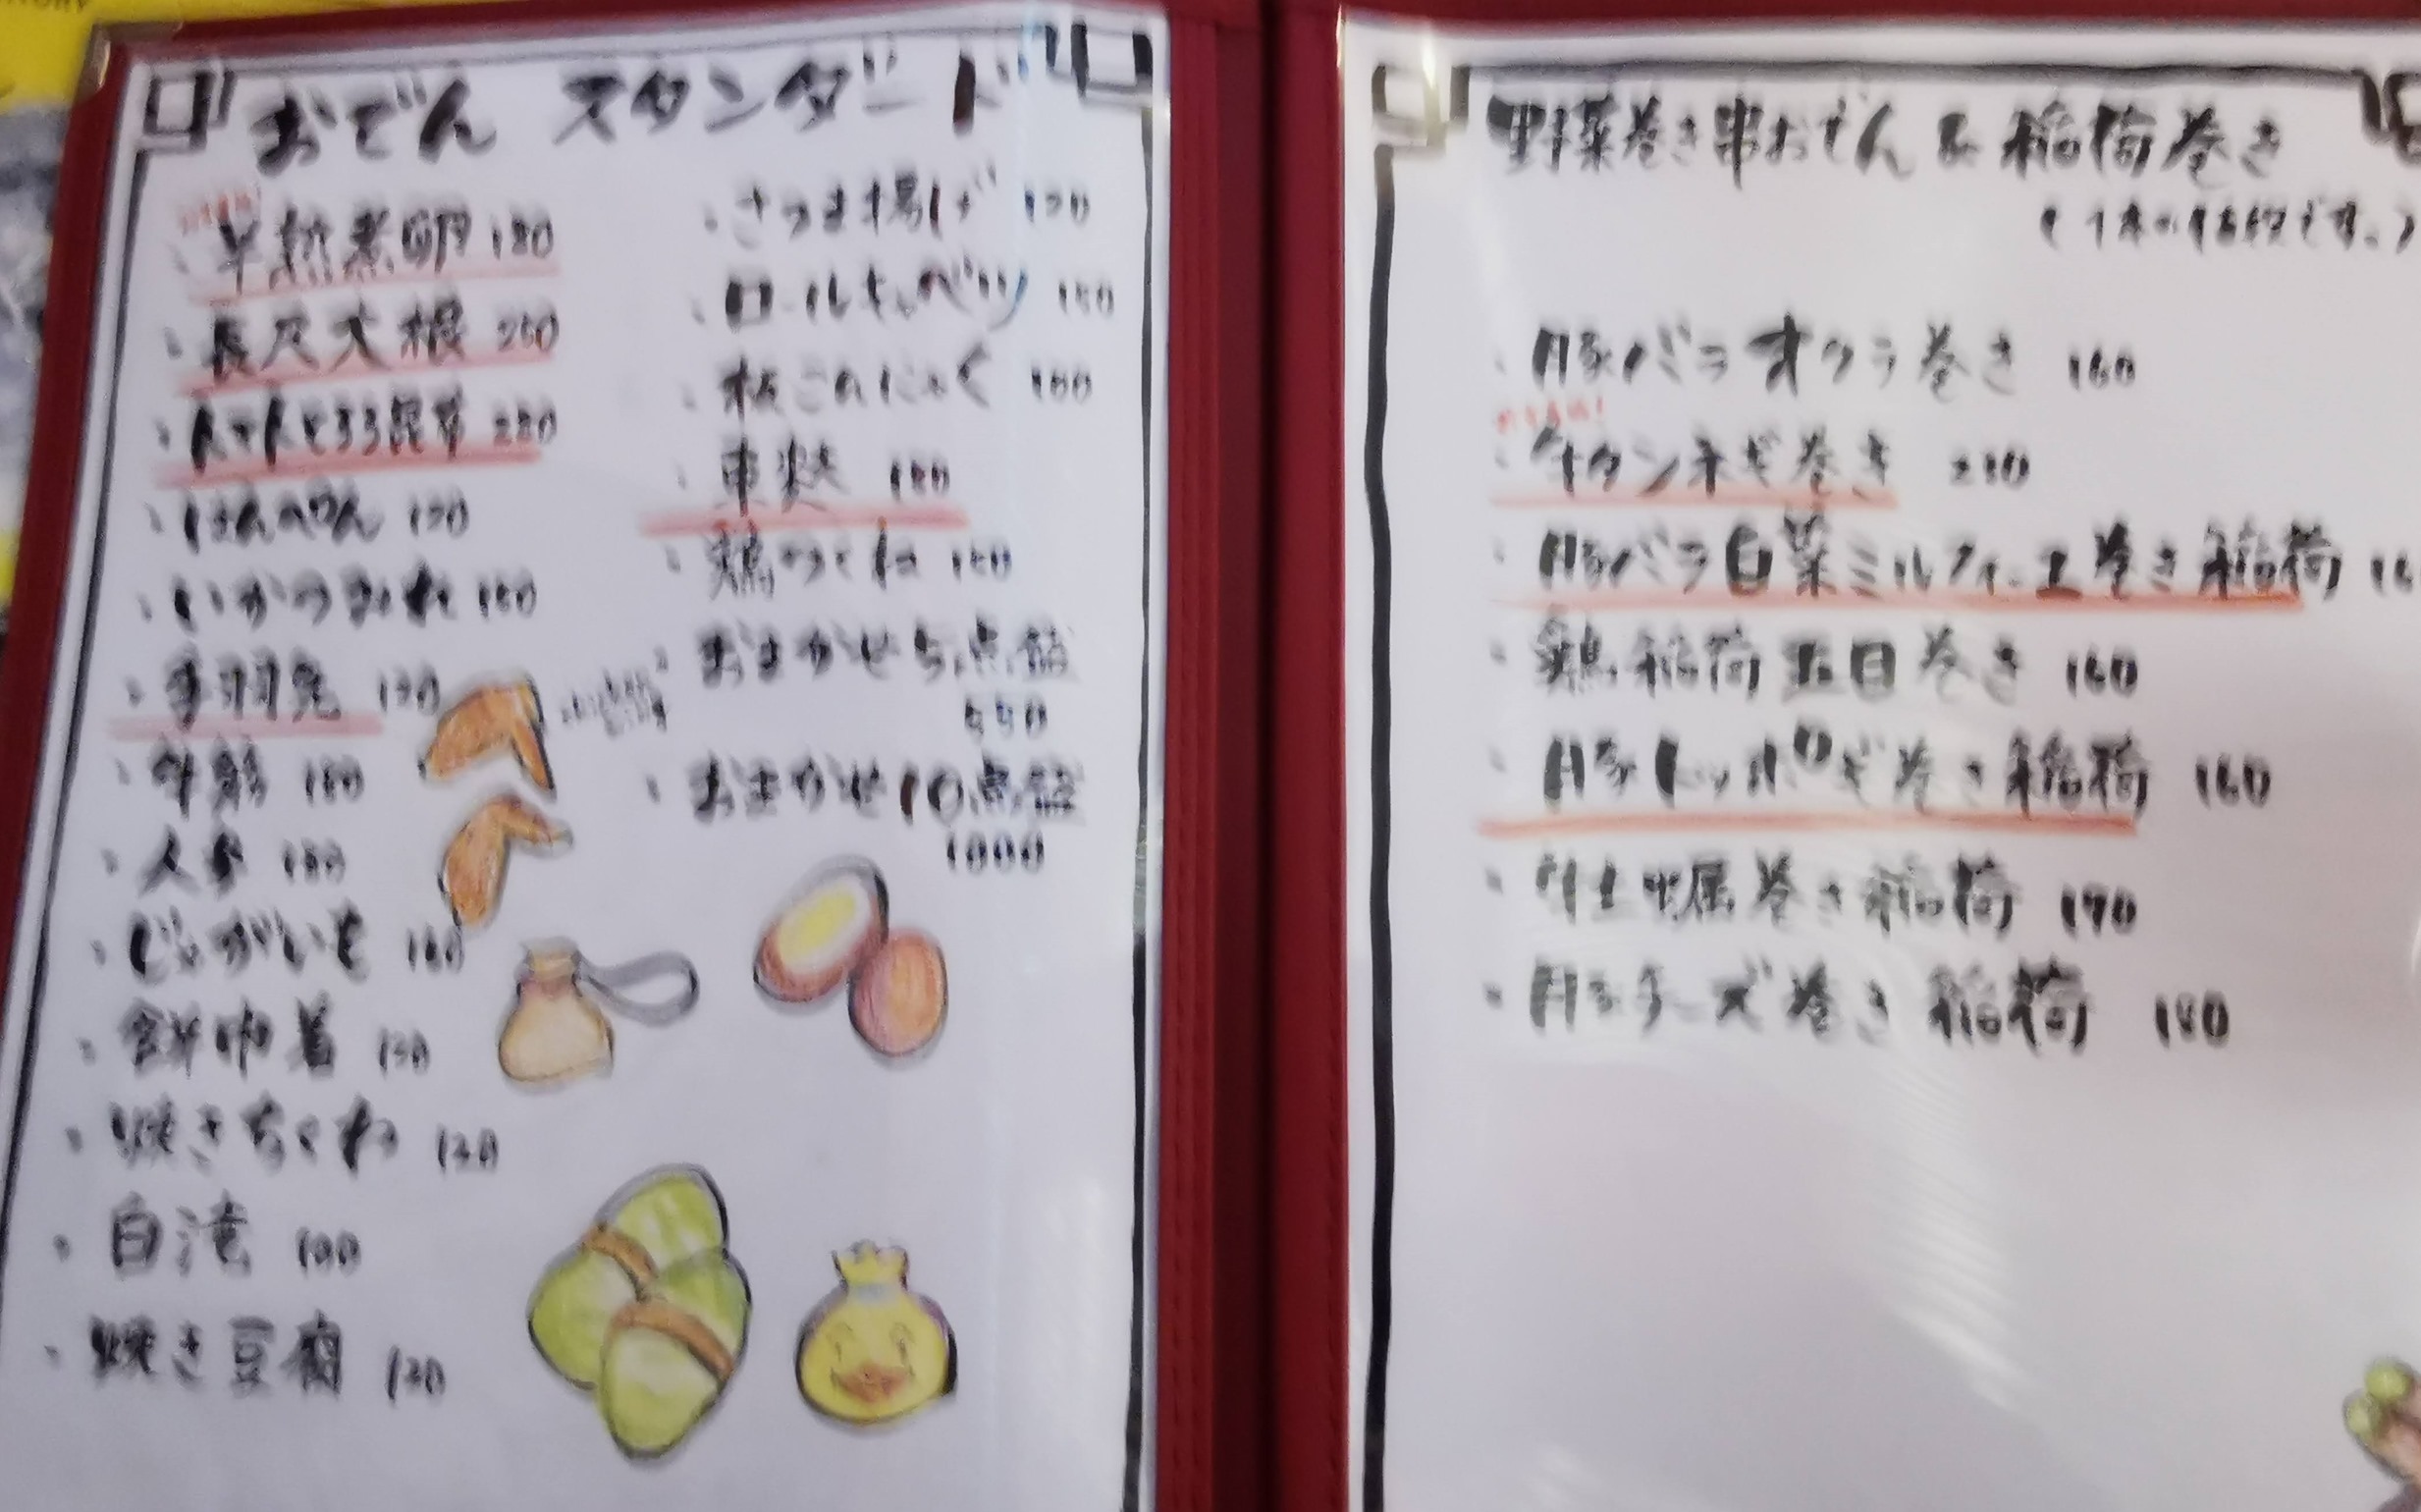 おでん スタンダード
半熟煮卵 180
・長尺大根 250
・トマトとろろ昆布 220
・はんぺん 120
・いかつみれ 150
・手羽先 120
・牛筋 180
・人参
・じゃがいも 160
・餅巾着 120
・焼きちくわ 120
・白滝 100
・焼き豆腐 120
・さつま揚げ 120
・ロールキャベツ 150
・板こんにゃく 100
・車麩 100
・鶏つくね 150
・おまかせ5点盛
550
・おまかせ10点盛
1000
野菜巻き串おでん & 稲荷巻き
(1本の値段です。)
・豚バラオクラ巻き 160
・牛タンネギ巻き 230
・豚バラ白菜ミルフィーユ巻き稲荷
・鶏稲荷五目巻き 160
・豚トッポギ巻き稲荷 160
・牛土手堀巻き稲荷 170
・豚チーズ巻き稲荷 180